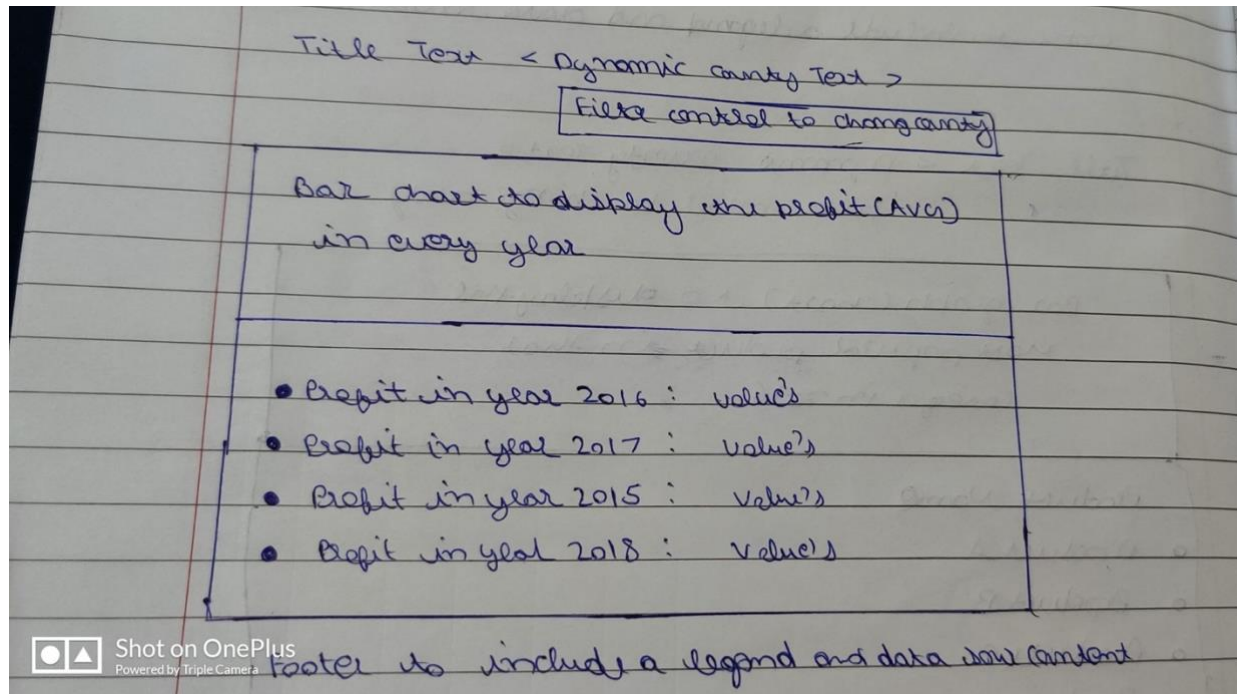 Title Text < Dynamic county Text >
Filter control to chang county
Bar chart to display the profit (AVG)
in every year
• Profit in year 2016 : value's
• Profit in year 2017 : value's
• Profit in year 2015 : value's
• Profit in year 2018 : value's
Shot on OnePlus
Powered by Triple Camera
Footer to include a legend and data content